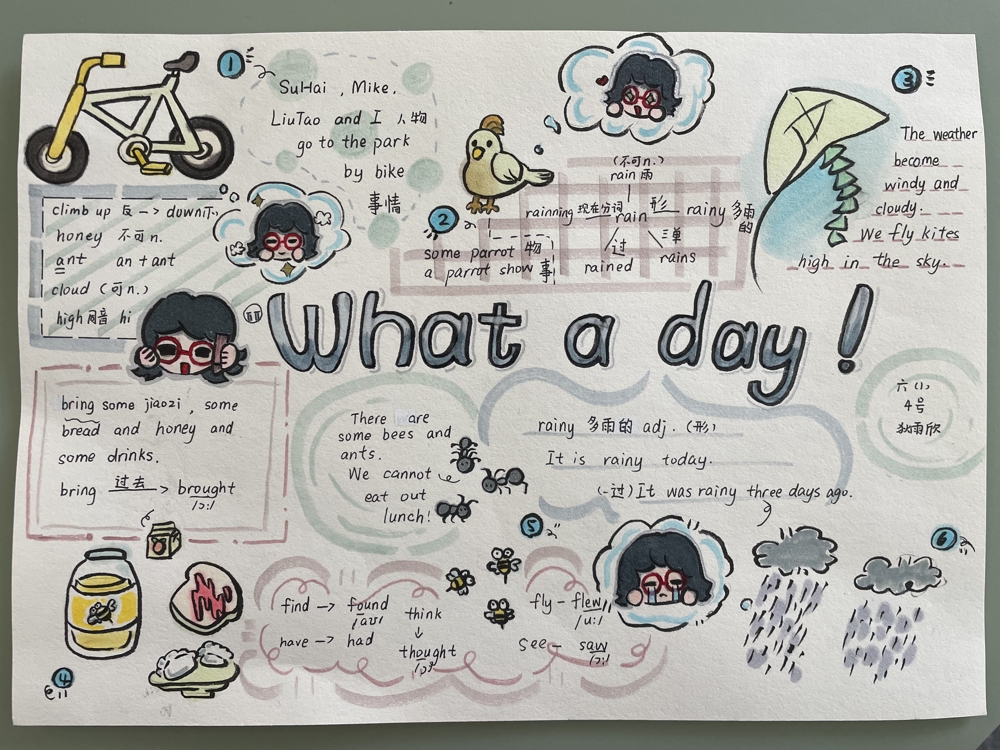 1
SuHai , Mike,
LiuTao and I 人物
go to the park
by bike
事情
climb up 反 -> down下
honey 不可 n.
ant an + ant
cloud (可n.)
high 同音 hi
2
(不可n.)
rain 雨
rainning 现在分词 rain 形 rainy 多雨的
过 三单
rained rains
some parrot 物
a parrot show 事
3
The weather
become
windy and
cloudy.
We fly kites
high in the sky.
What a day!
六(1)
4号
狄雨欣
bring some jiaozi , some
bread and honey and
some drinks.
bring 过去 > brought
/ɔ:/
4
There are
some bees and
ants.
We cannot
eat out
lunch!
5
rainy 多雨的 adj. (形)
It is rainy today.
(一过) It was rainy three days ago.
6
find -> found think
/aʊ/ ↓
have -> had thought
/ɔ:/
fly - flew
/u:/
see - saw
/ɔ:/